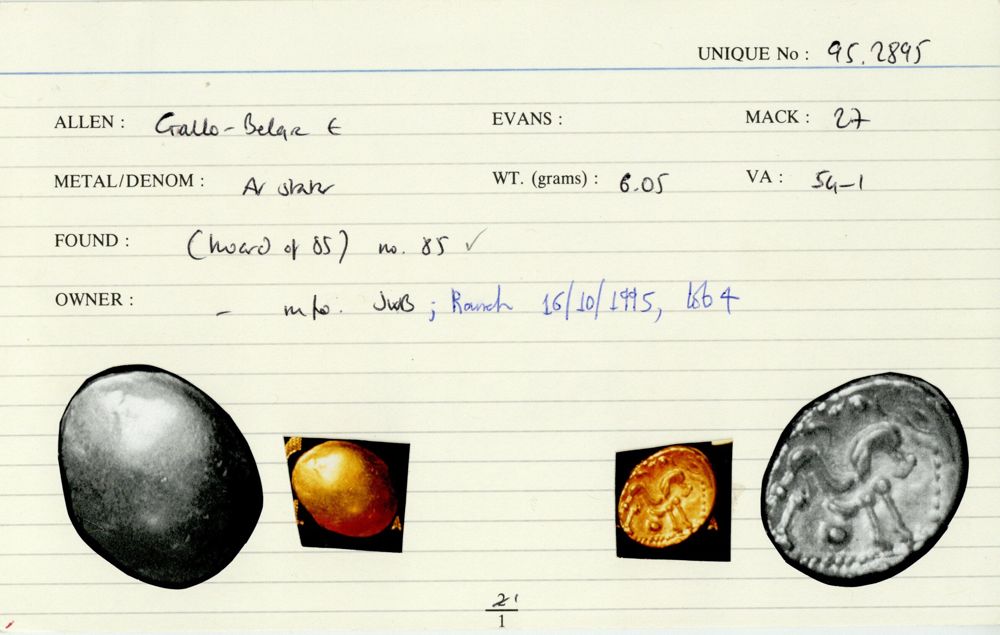 UNIQUE No : 95.2895
ALLEN : Gallo-Belgic E EVANS : MACK : 27
METAL/DENOM : AV stater WT. (grams) : 6.05 VA : 54-1
FOUND : (hoard of 85) no. 85 ✓
OWNER : - JWB ; 16/10/1995, lot 4
21
1